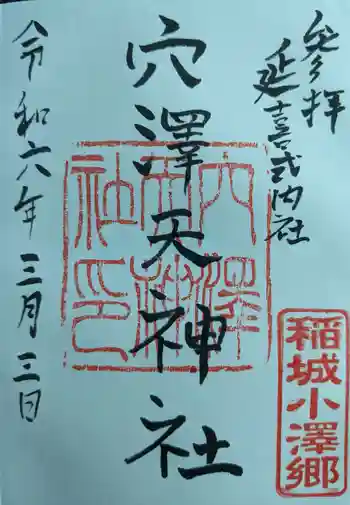 參拝
延喜式内社
穴澤天神社
令和六年三月三日
穴澤天神社印
稲城小澤郷